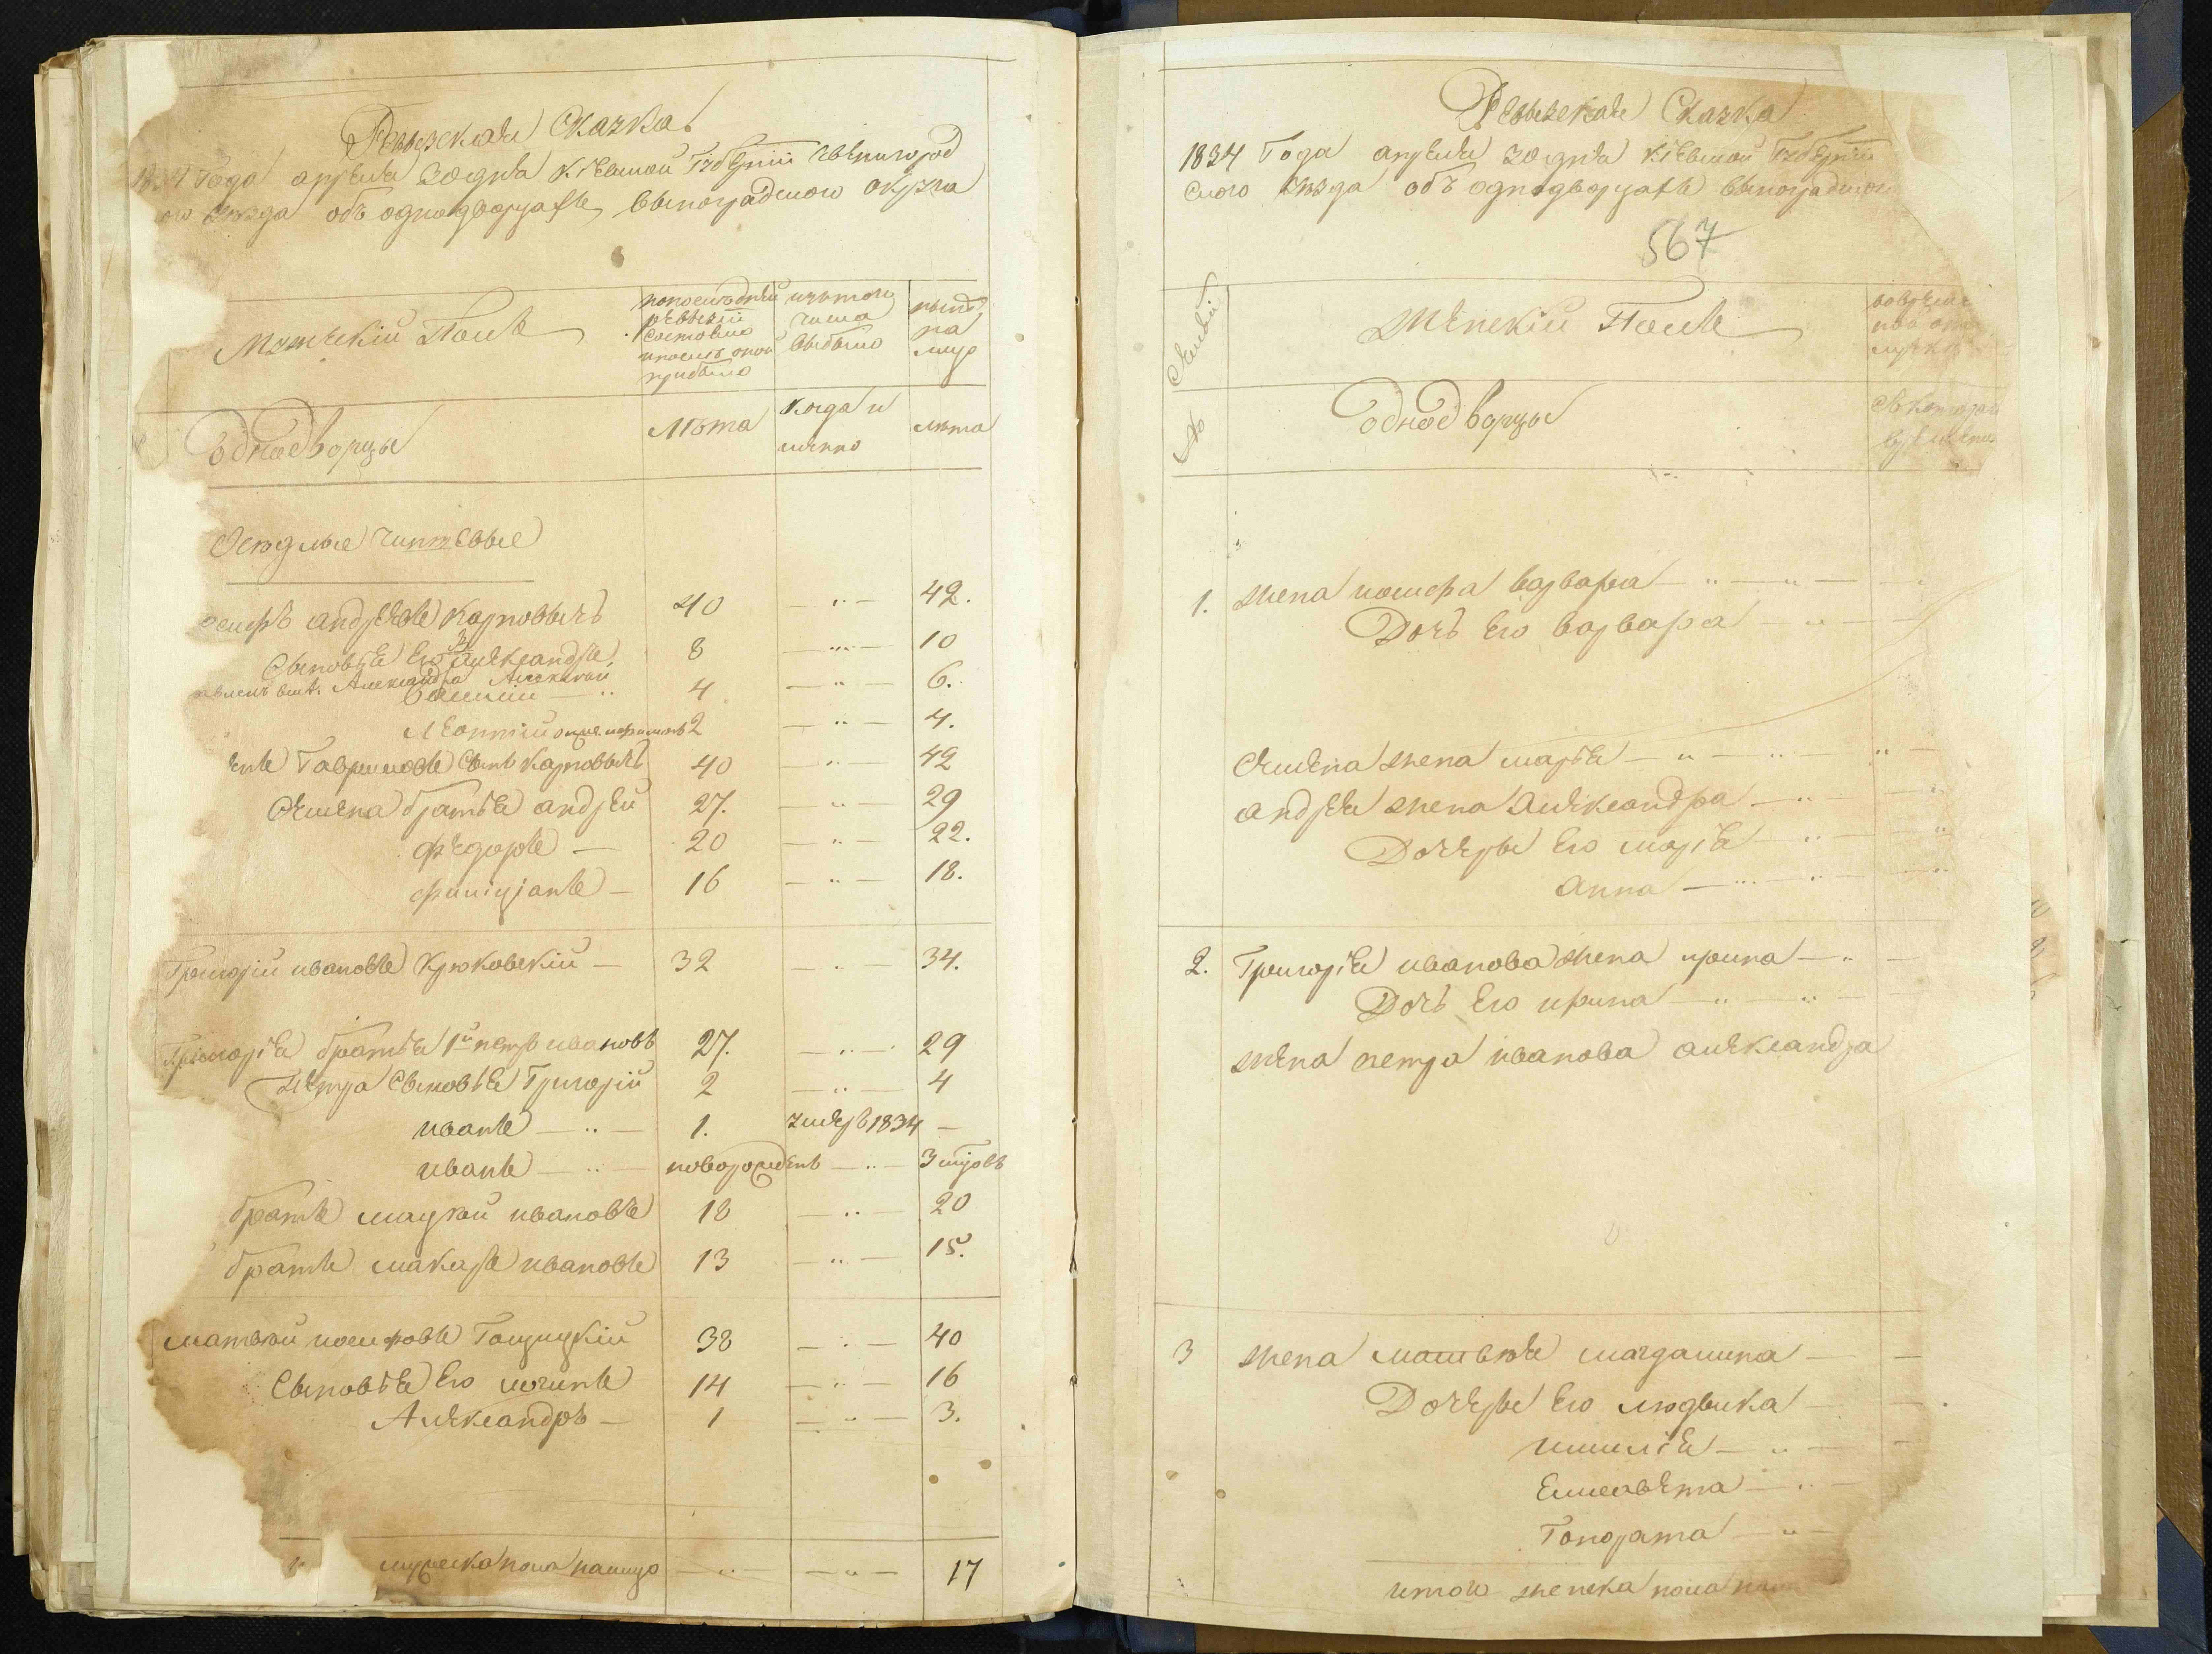 Ревизская Сказка
Года апреля 30 дня Кіевской Губерніи Звенигород
ого уезда объ однодворцахъ Виноградского округа
Мужескій Полъ
попоследней ревизіи состояло и после оной прибыло
изътого числа выбыло
ныне на лицо
Однодворцы
Лѣта
когда и имянно
лѣта
Оседлые чиншевые
осифъ андреевъ Карповычъ 40 — „ — 42.
Сыновья Его Александръ 8 — „ — 10
Александра Алексей
4 — „ — 6.
Леонтій 2 — „ — 4.
Гавриловъ Сынъ Карповычъ 40 — „ — 42
Семена братья андрей 27. — „ — 29
Федоръ — 20 — „ — 22.
филиціанъ — 16 — „ — 18.
Григорій ивановъ Крюковскій — 32 — „ — 34.
Григорія братья 1й петръ ивановъ 27. — „ — 29
Петра Сыновья Григорій 2 — „ — 4
иванъ — „ — 1. умеръ 1834 —
иванъ — „ — новорожденъ — „ — 3
братъ мацей ивановъ 18 — „ — 20
братъ макаръ ивановъ 13 — „ — 15.
матвей иосифовъ Гощицкій 38 — „ — 40
Сыновья Его 14 — „ — 16
Александръ — 1 — „ — 3.
мужеска пола налицо — „ — — „ — 17
Ревизская Сказка
1834 Года апреля 30 дня Кіевской Губерніи
ского уезда объ однодворцахъ Виноградского
567
Семьи
Женскій Полъ
вовреме
ной от
лучке
№
Однодворцы
съ которого
времени
1. жена иосифа варвара — „ — „ —
Дочь Его варвара — „ —
Семена жена марья — „ — „ — „ —
андрея жена Александра — „ —
Дочеры Его марія — „ —
анна — „ — „ —
2. Григорія иванова жена ирина — „ —
Дочь Его ирина — „ — „ —
жена петра иванова александра
3 жена матвея магдалина —
Дочеры Его людвика —
Емилія — „ —
Елисавета — „ —
Гонората — „ —
итого женска пола